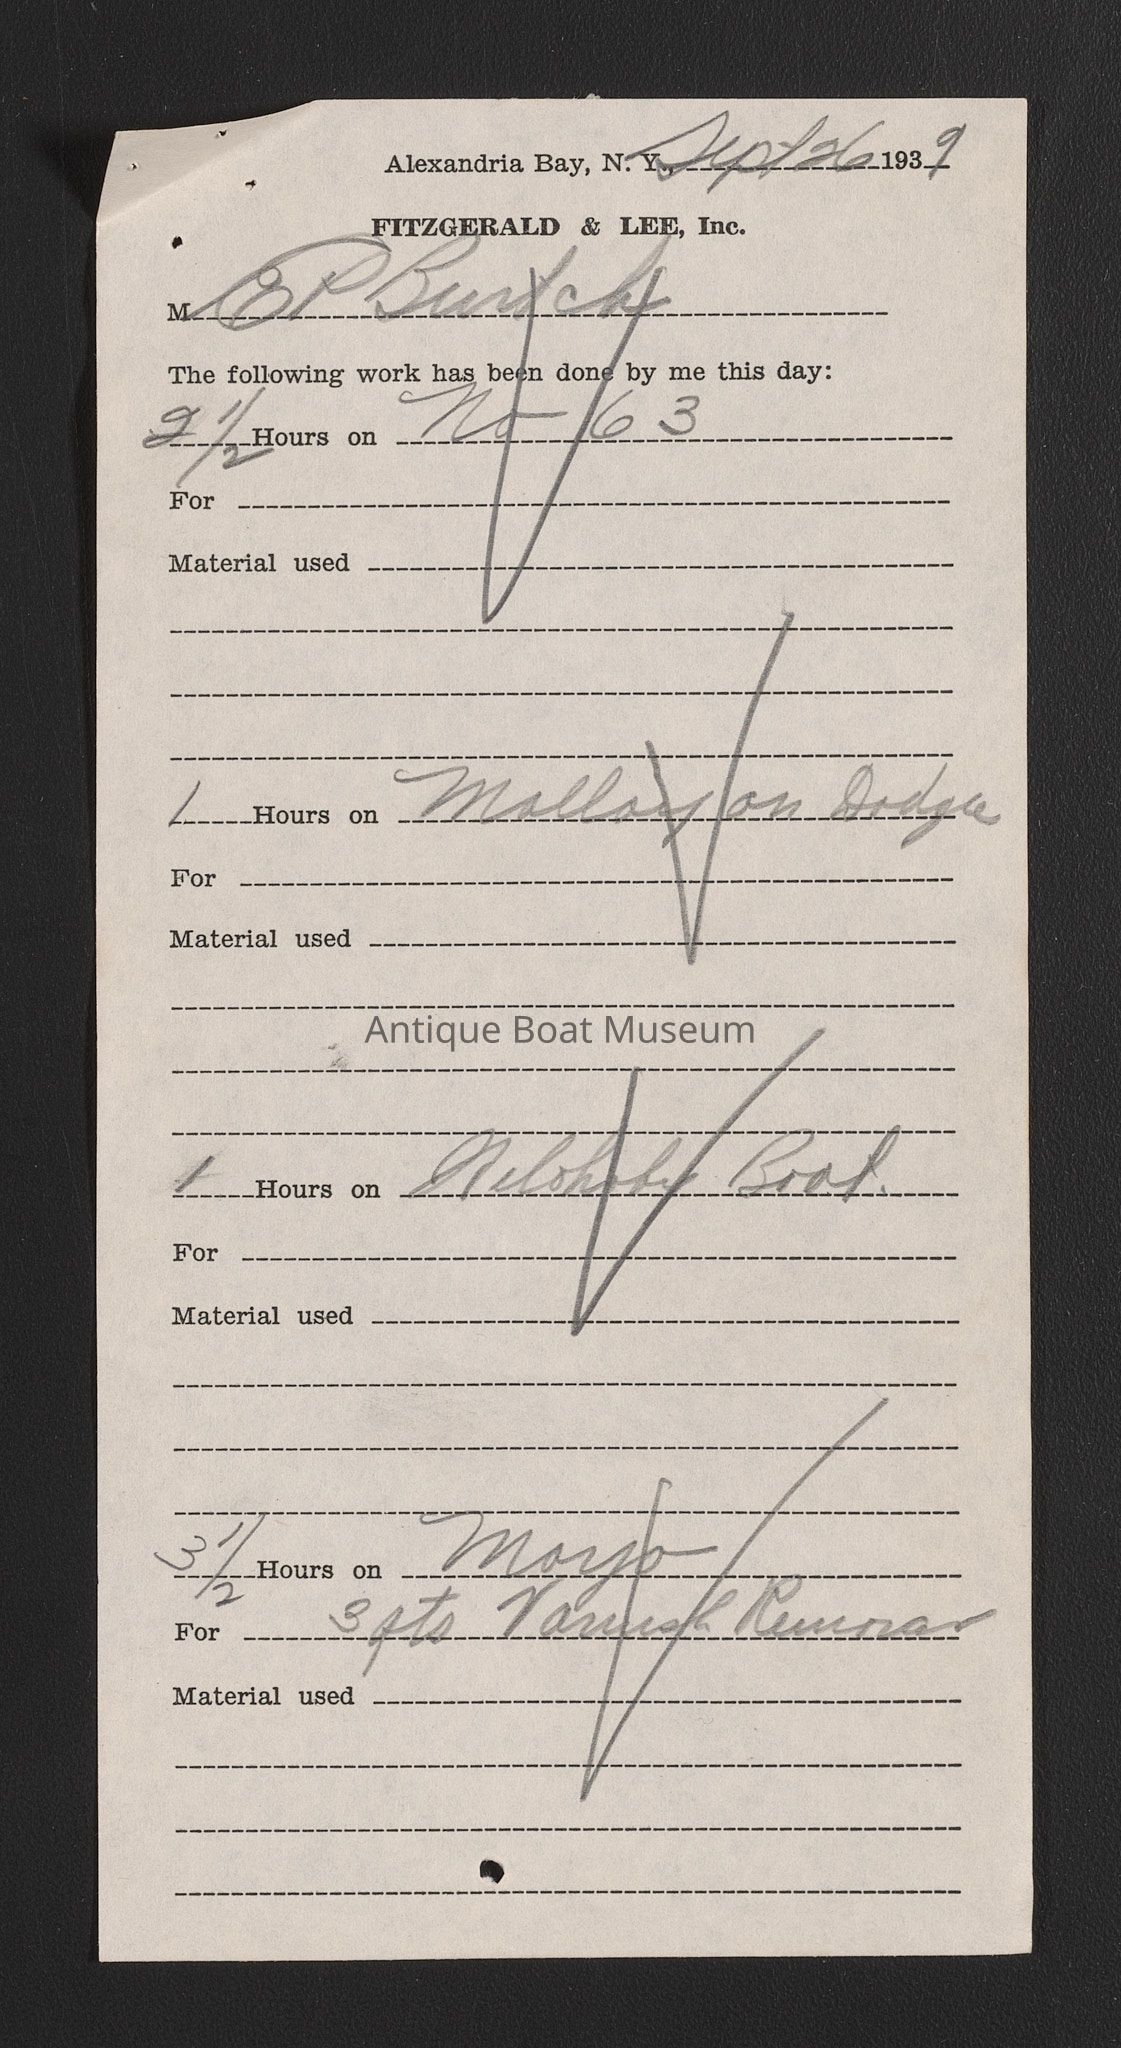 Alexandria Bay, N. Y., Sept 26 1939
FITZGERALD & LEE, Inc.
M EP Burtch
The following work has been done by me this day:
2 1/2 Hours on No 63
For
Material used
1 Hours on Mallory on Dodge
For
Material used
Antique Boat Museum
1 Hours on Boat.
For
Material used
3 1/2 Hours on Moryo
For 3 qts Varnish Remover
Material used